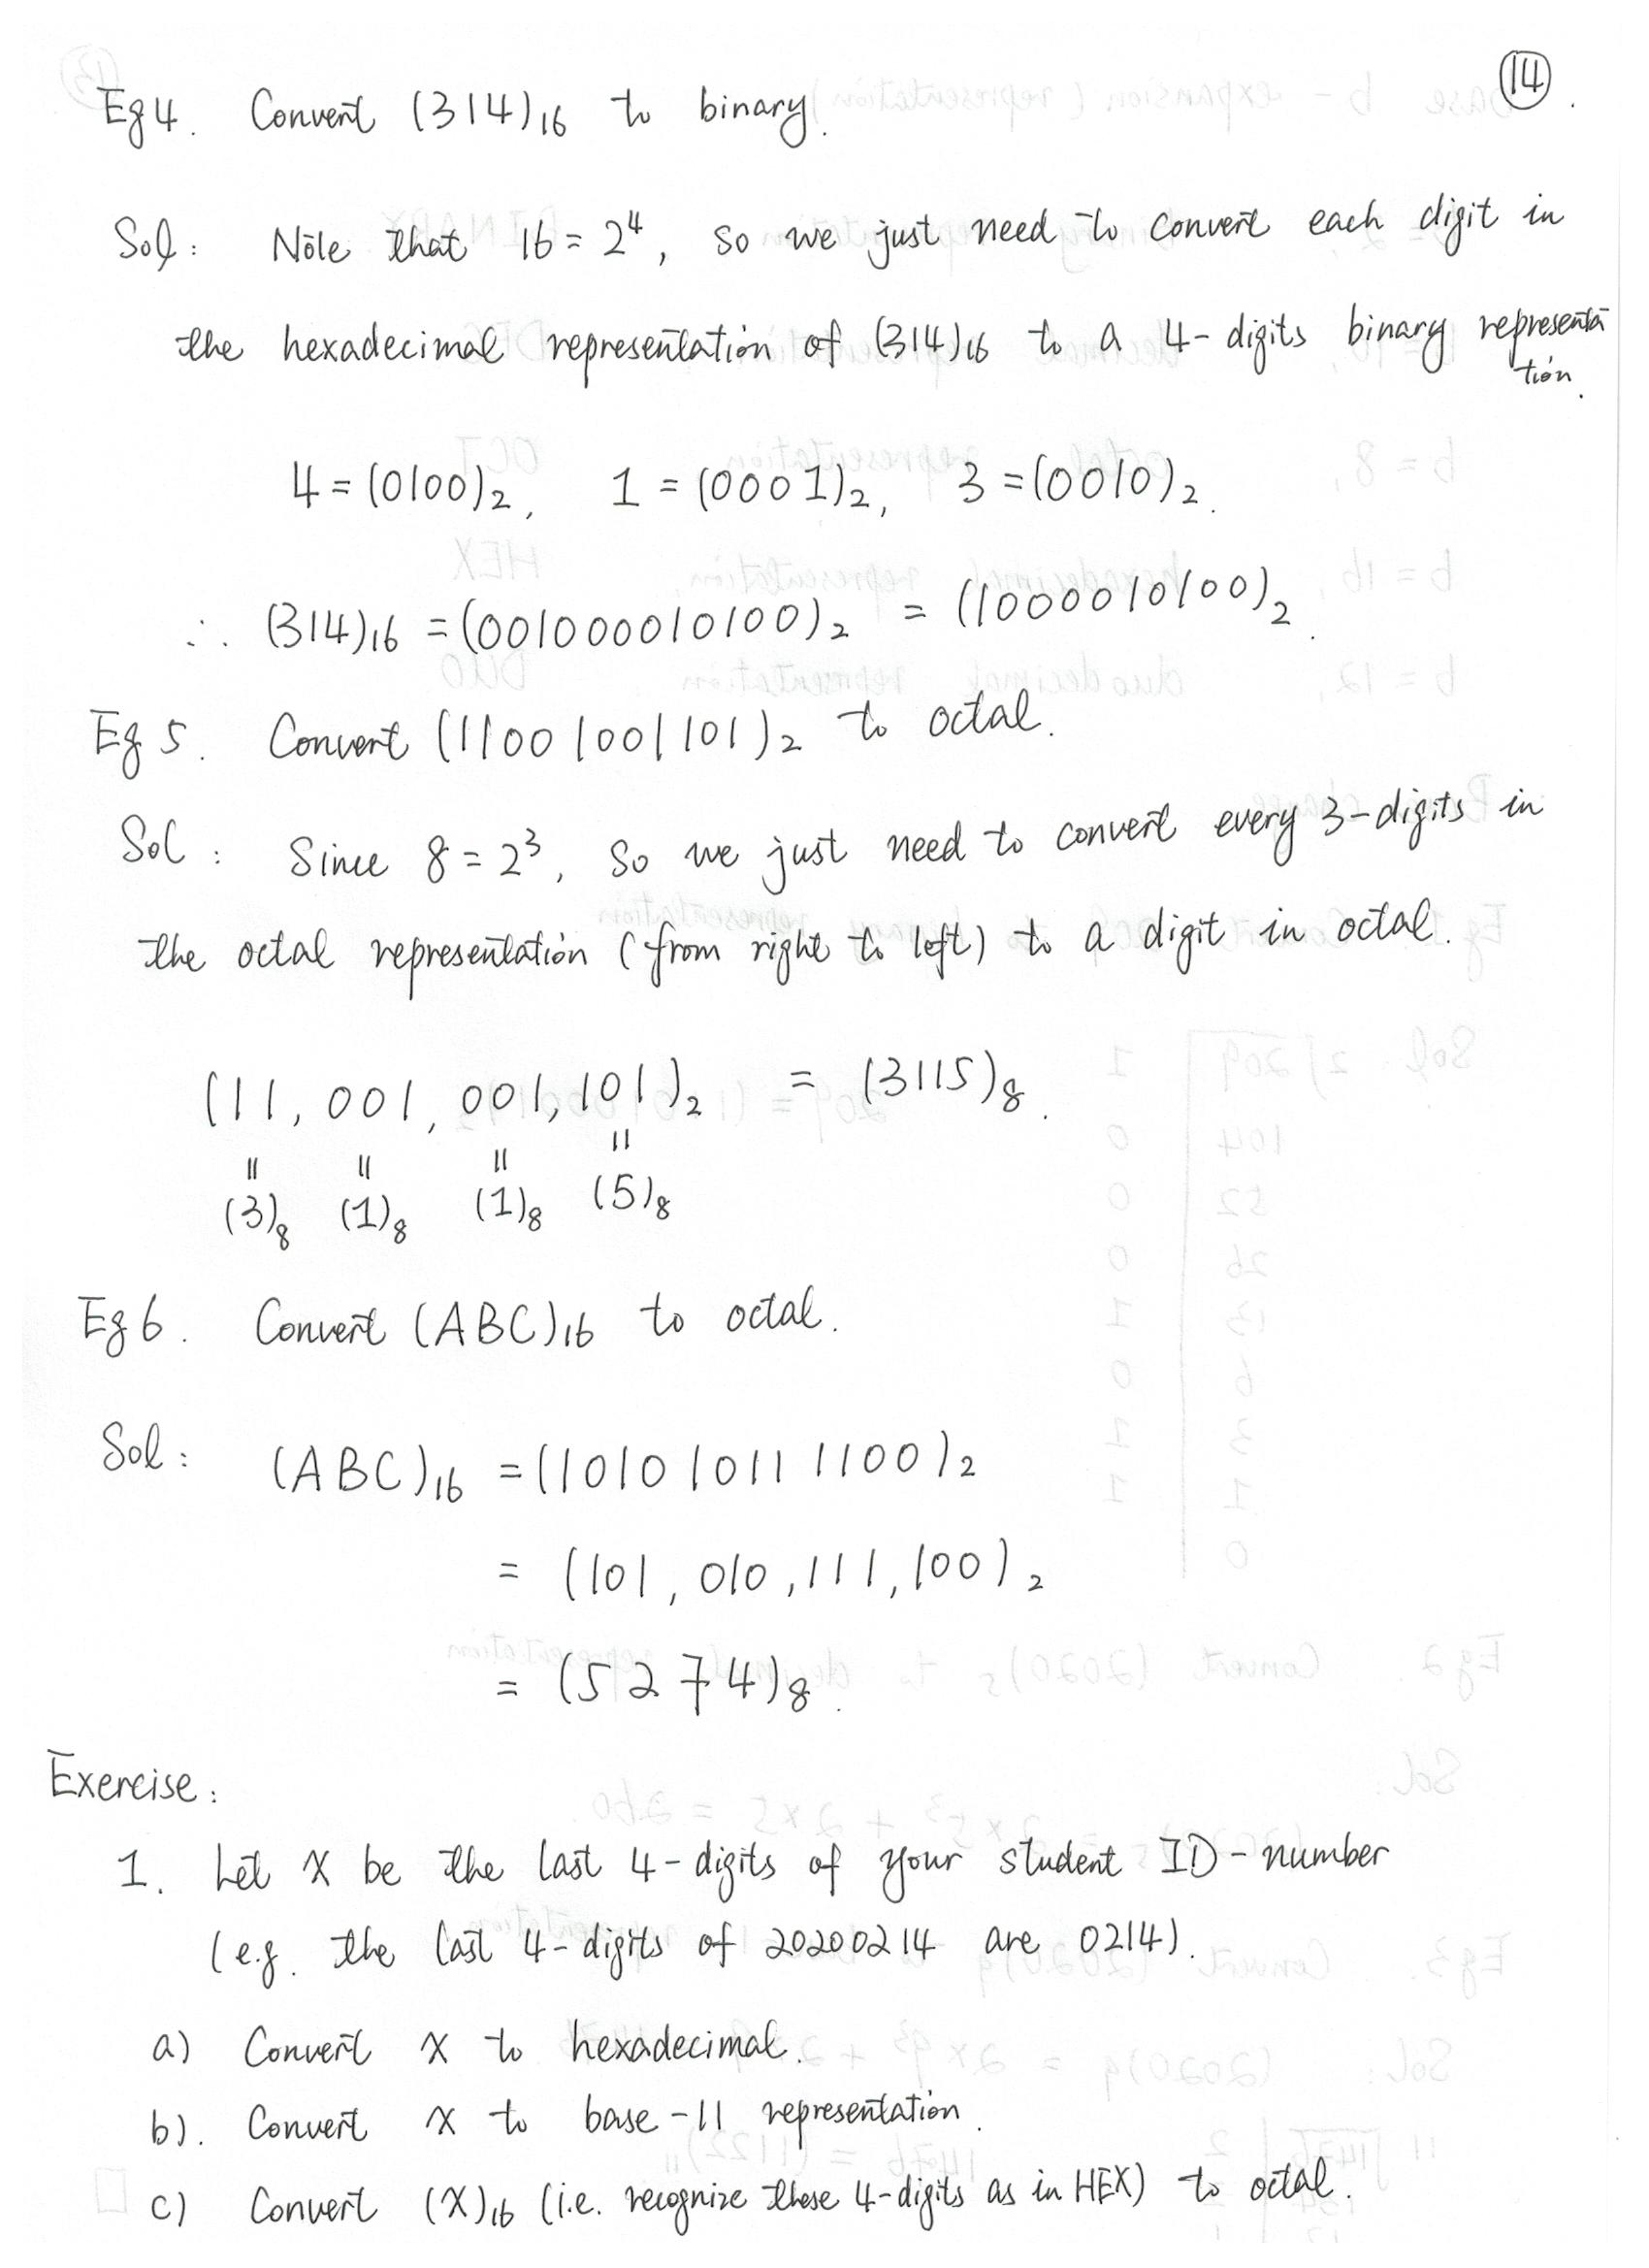 14
Eg 4. Convert (314)16 to binary.
Sol: Note that 16 = 2^4, so we just need to convert each digit in
the hexadecimal representation of (314)16 to a 4-digits binary representa
tion.
4 = (0100)2, 1 = (0001)2, 3 = (0010)2.
∴ (314)16 = (001000010100)2 = (1000010100)2.
Eg 5. Convert (11001001101)2 to octal.
Sol: Since 8 = 2^3, so we just need to convert every 3-digits in
the octal representation (from right to left) to a digit in octal.
(11, 001, 001, 101)2 = (3115)8.
= = = =
(3)8 (1)8 (1)8 (5)8
Eg 6. Convert (ABC)16 to octal.
Sol: (ABC)16 = (1010 1011 1100)2
= (101, 010, 111, 100)2
= (5274)8.
Exercise:
1. Let x be the last 4-digits of your student ID-number
(e.g. the last 4-digits of 20200214 are 0214).
a) Convert x to hexadecimal.
b). Convert x to base-11 representation.
c) Convert (x)16 (i.e. recognize these 4-digits as in HEX) to octal.